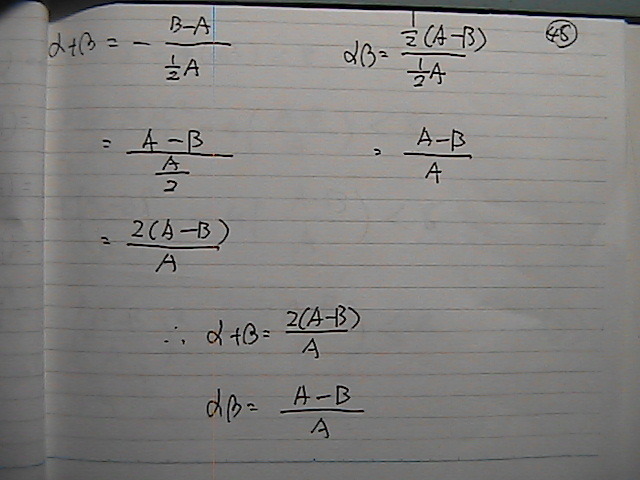 α+β = - (B-A)/(½A)    αβ = (½(A-B))/(½A)    ㊺
= (A-B)/(A/2)    = (A-B)/A
= 2(A-B)/A
∴ α+β = 2(A-B)/A
αβ = (A-B)/A